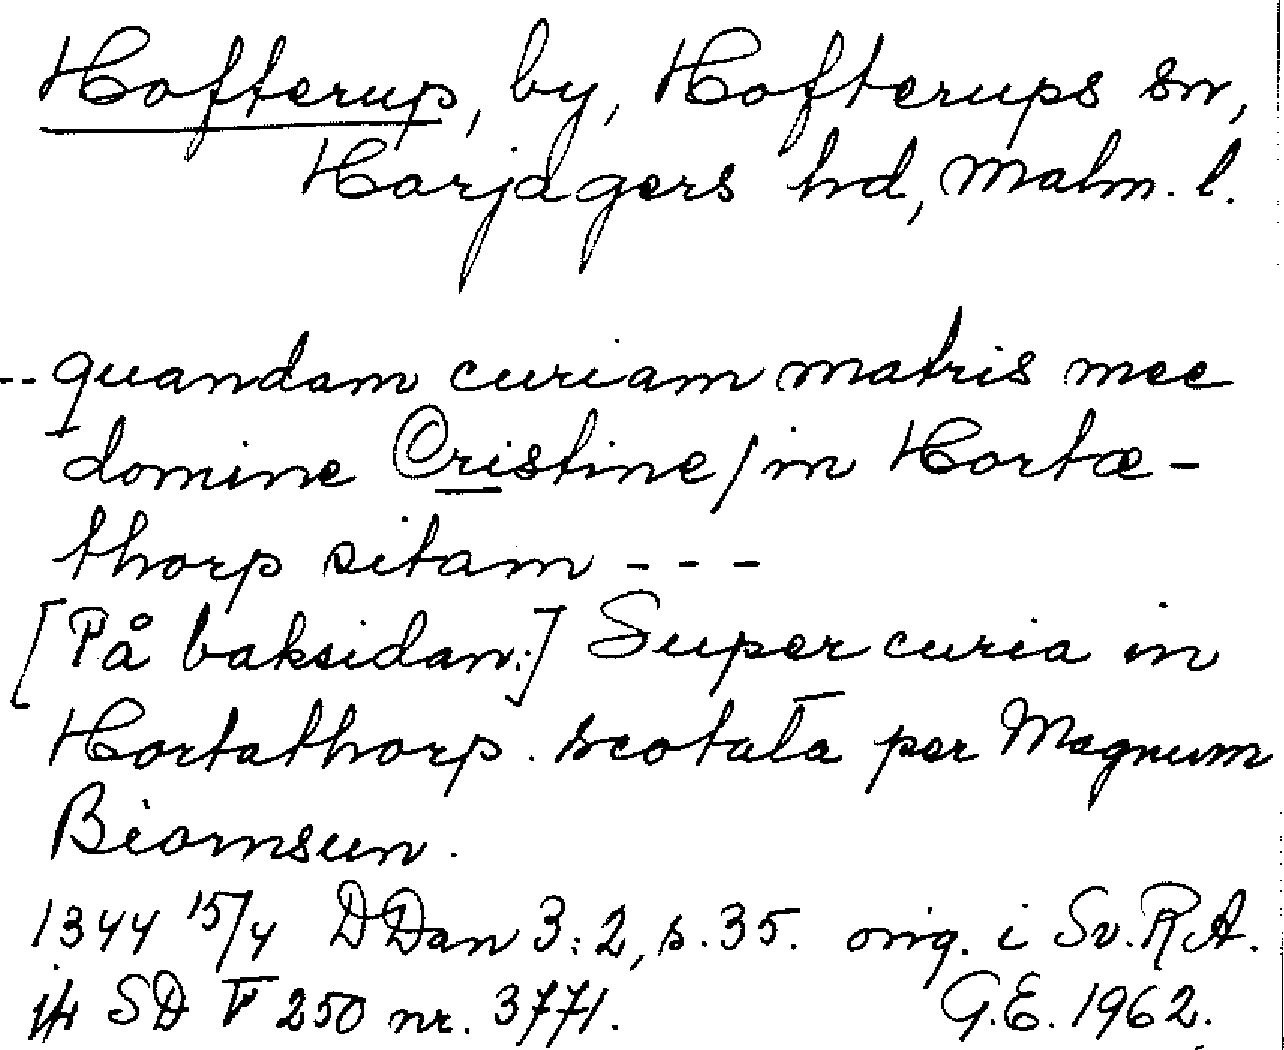 Hofterup, by, Hofterups sn,
Harjagers hd, Malm. l.
-- quandam curiam matris mee
domine Cristine / in Hortæ-
thorp sitam ---
[På baksidan:] Super curia in
Hortathorp. scotata per Magnum
Biornsun.
1344 15/4 DDan 3:2, s. 35. orig. i Sv. RA.
jfr SD V 250 nr. 3771. G.E. 1962.